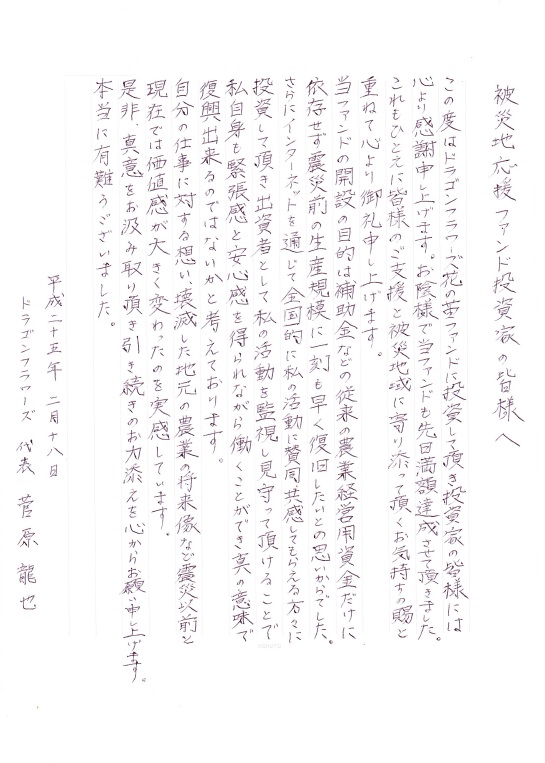 被災地応援ファンド投資家の皆様へ
この度はドラゴンフラワーズ花の茎ファンドに投資して頂き投資家の皆様には
心より感謝申し上げます。お陰様で当ファンドも先日満額達成させて頂きました。
これもひとえに皆様のご支援と被災地域に寄り添って頂くお気持ちの賜と
重ねて心より御礼申し上げます。
当ファンドの開設の目的は補助金などの従来の農業経営用資金だけに
依存せず震災前の生産規模に一刻も早く復旧したいとの思いからでした。
さらにインターネットを通じて全国的に私の活動に賛同、共感してもらえる方々に
投資して頂き出資者として私の活動を監視し見守って頂けることで
私自身も緊張感と安心感を得られながら働くことができ真の意味で
復興出来るのではないかと考えております。
自分の仕事に対する想い、壊滅した地元の農業の将来像など震災以前と
現在では価値感が大きく変わったのを実感しています。
是非、真意をお汲み取り頂き引き続きのお力添えを心からお願い申し上げます。
本当に有難うございました。
平成二十五年 二月十八日
ドラゴンフラワーズ 代表 菅原龍也